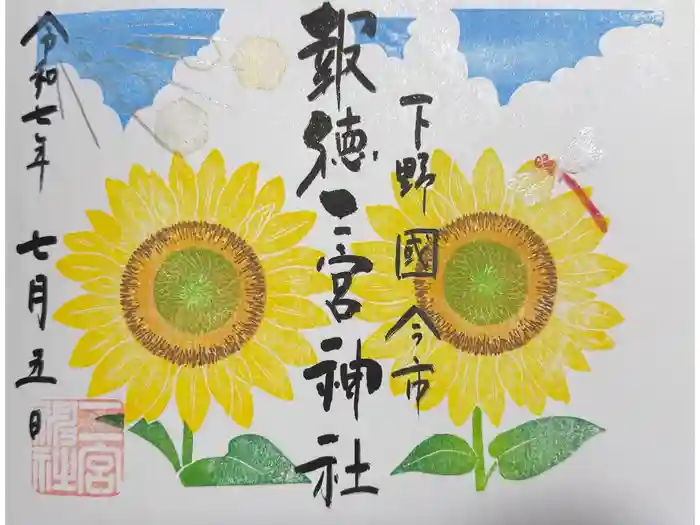 下野國今市
報徳二宮神社
令和七年 七月五日